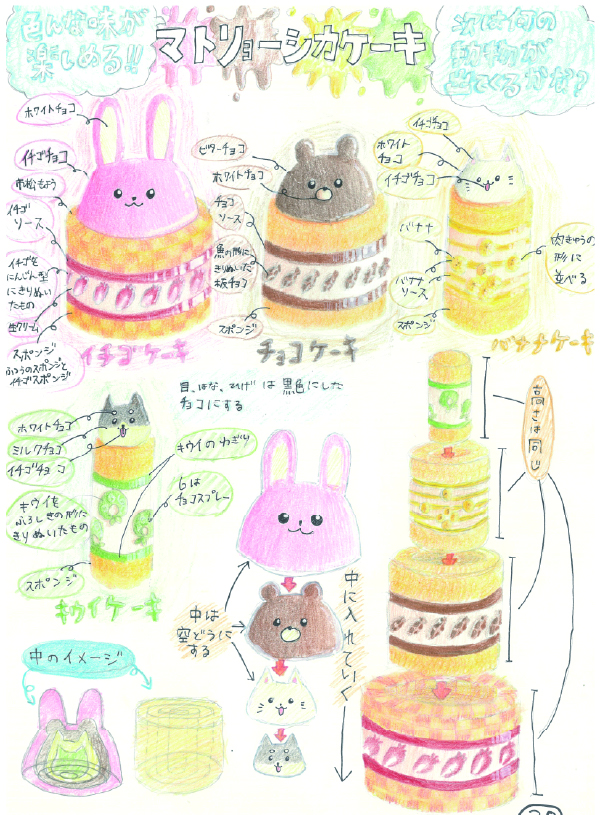 色んな味が
楽しめる!!
マトリョーシカケーキ
次は何の
動物が
出てくるかな?
ホワイトチョコ
イチゴチョコ
市松もよう
イチゴ
ソース
イチゴを
にんじん型
にきりぬい
たもの
生クリーム
スポンジ
ふつうのスポンジと
イチゴスポンジ
イチゴケーキ
ビターチョコ
ホワイトチョコ
チョコ
ソース
魚の形に
きりぬいた
板チョコ
スポンジ
チョコケーキ
イチゴチョコ
ホワイト
チョコ
イチゴチョコ
バナナ
バナナ
ソース
スポンジ
肉きゅうの
形に
並べる
バナナケーキ
目、はな、ひげは黒色にした
チョコにする
ホワイトチョコ
ミルクチョコ
イチゴチョコ
キウイのわぎり
キウイを
ふろしきの形に
きりぬいたもの
スポンジ
キウイケーキ
中は
空どうに
する
中に入れていく
高さは同じ
中のイメージ